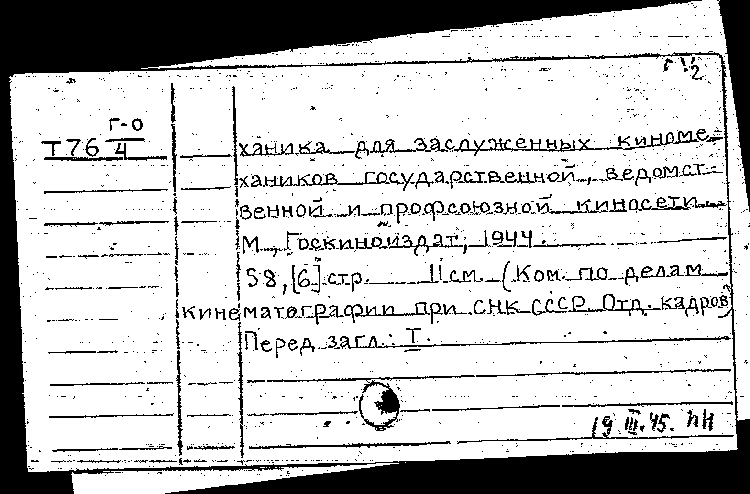 2
Г-0
Т76 4
ханика для заслуженных киноме-
хаников государственной, ведомст-
венной и профсоюзной киносети.
М., Госкиноиздат, 1944.
58, [6] стр. 11 см. (Ком. по делам
кинематографии при СНК СССР. Отд. кадров)
Перед загл.: I.
19 III.45. НН